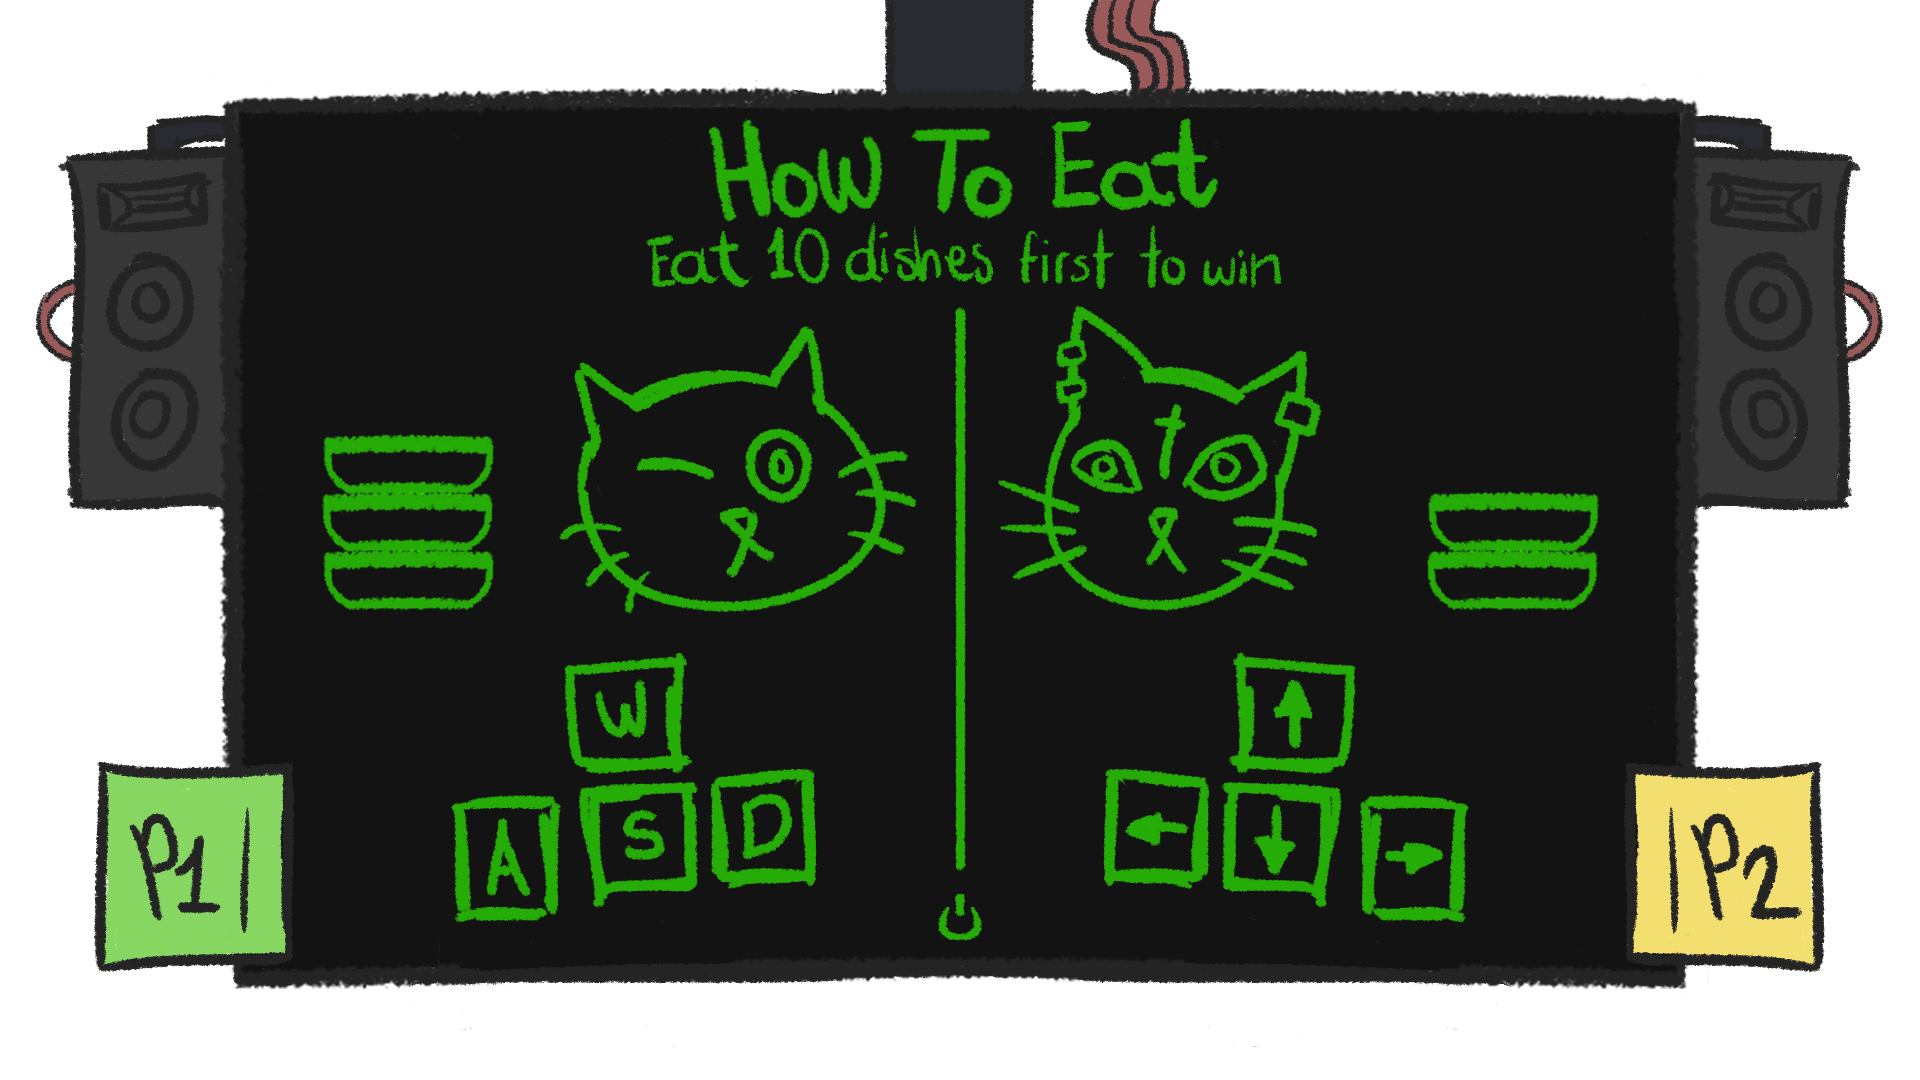 How To Eat
Eat 10 dishes first to win
W
↑
A S D
← ↓ →
P1
P2